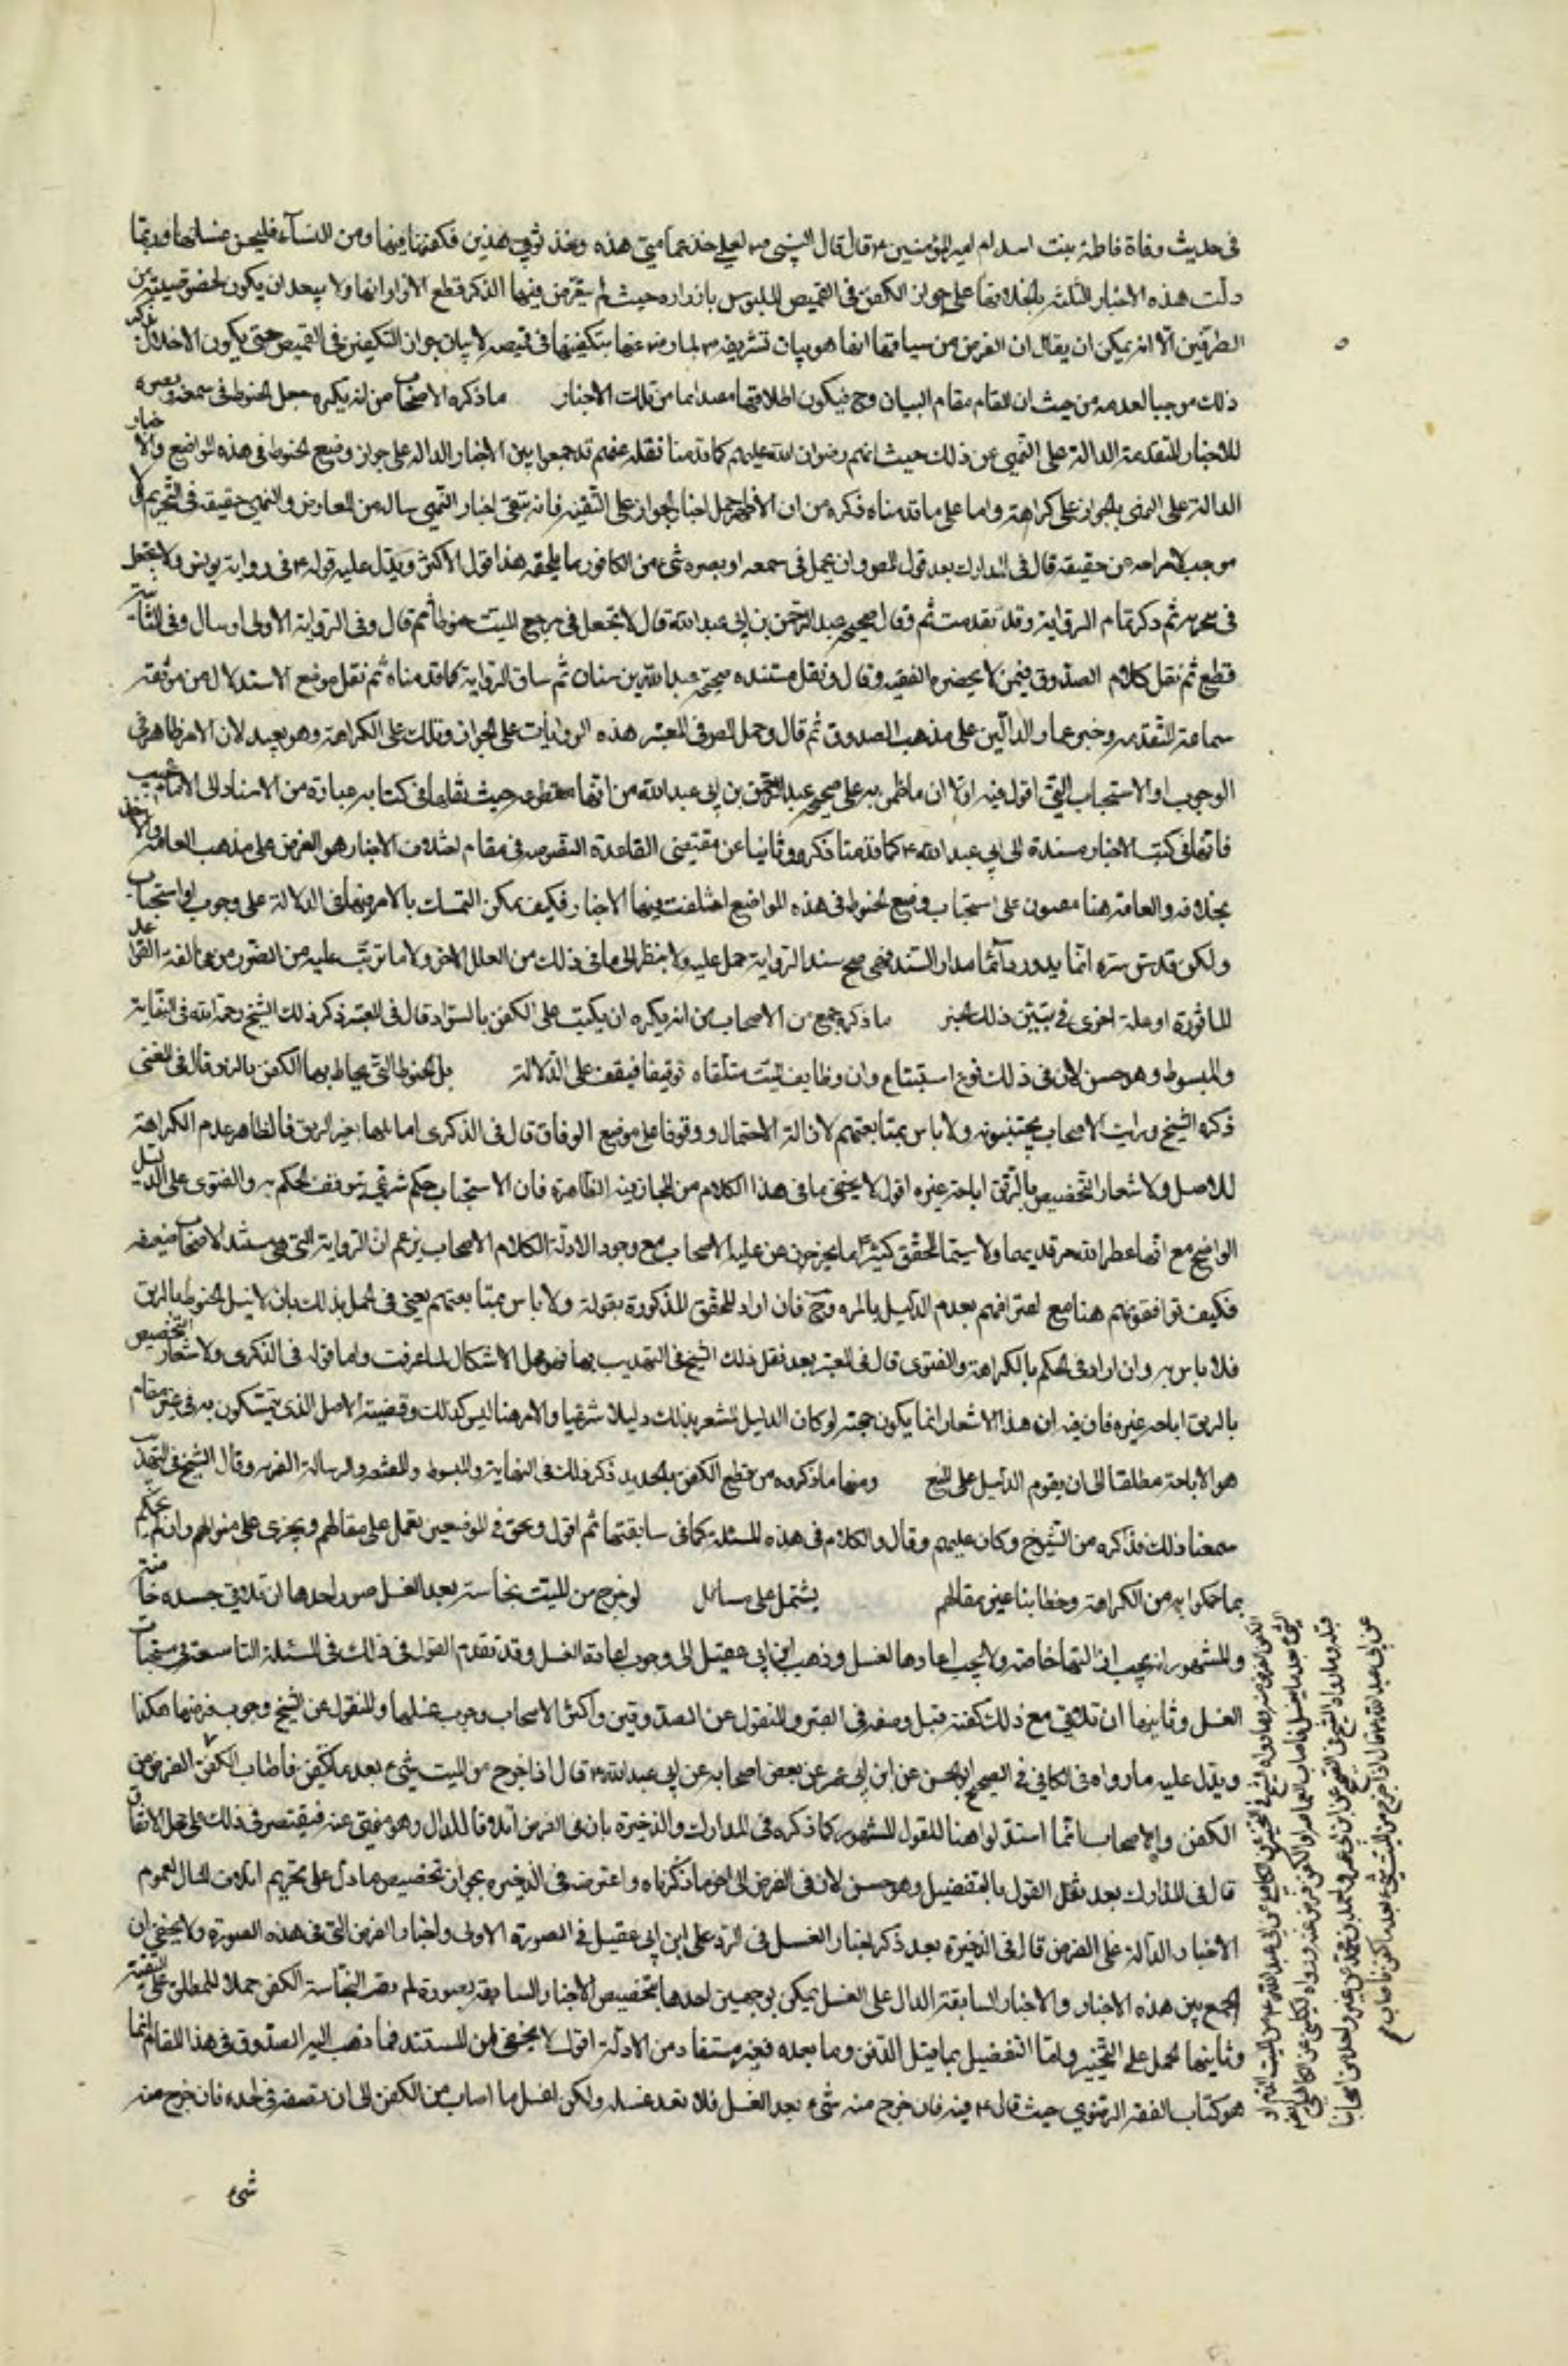 في حديث وفاة فاطمة بنت اسد ام امير المؤمنين ع قال قال النبي ص لعلي خذ عمامتي هذه وخذ ثوبي هذين فكفنها فيهما ومر النساء فليحسن غسلها وربما
دلت هذه الاخبار الثلثة باطلاقها على جواز الكفن في القميص الملبوس بازراره حيث لم يتعرض فيها الذكر قطع الازرار انها ولا يبعد ان يكون لخصوصية من
الطرفين الا انه يمكن ان يقال ان الغرض من سياقها انما هو بيان تشريفه ص لها رض عنها بتكفينها في قميصه لا بيان جواز التكفين في القميص حتى يكون الاخلال بذكر
ذلك موجبا لعدمه من حيث ان المقام مقام البيان وح فيكون اطلاقها مقيدا بما من تلك الاخبار ما ذكره الاصحاب من انه يكره جعل الحنوط في سمعه وبصره
للاخبار المتقدمة الدالة على النهي عن ذلك حيث انهم رضوان الله عليهم كما قدمنا نقله عنهم قد جمعوا بين الاخبار الدالة على جواز وضع الحنوط في هذه المواضع والاخبار
الدالة على النهي بالجواز على كراهة واما على ما قدمناه ذكره من ان الاظهر حمل اخبار الجواز على التقية فانه تبقى اخبار النهي سالمة من المعارض والنهي حقيقة في التحريم ولا
موجب لاخراجه عن حقيقته قال في المدارك بعد قول المص وان يجعل في سمعه او بصره شيء من الكافور ما يلحقه هذا قول الاكثر ويدل عليه قوله ع في رواية يونس ولا تجعل
في منخريه ثم ذكر تمام الرواية وقد تقدمت ثم وقال صحيحة عبد الرحمن بن ابي عبد الله قال لا تجعل في مسامع الميت حنوطا ثم قال وفي الرواية الاولى ارسال وفي الثانية
قطع ثم نقل كلام الصدوق فيمن لا يحضره الفقيه وقال ونقل مستنده صحيحة عبد الله بن سنان ثم ساق الرواية كما قدمناه ثم نقل موضع الاستدلال من موثقة
سماعة المتقدمة وخبر عمار الدالين على مذهب الصدوق ثم قال وحمل المص في المعتبر هذه الروايات على الجواز وتلك على الكراهة وهو بعيد لان الامر ظاهر في
الوجوب او الاستحباب انتهى اقول فيه اولا ان ما طعن به على صحيحة عبد الرحمن بن ابي عبد الله من انها مقطوعة حيث نقلها في كتابه عبارة من الاسناد الى الامام عجيب
فانها في كتب الاخبار مسندة الى ابي عبد الله ع كما قدمنا ذكره وثانيا عن مقتضى القاعدة المنصوصة في مقام اختلاف الاخبار هو العرض على مذهب العامة والاخذ
بخلافه والعامة هنا مصرون على استحباب وضع الحنوط في هذه المواضع اختلفت فيها الاخبار فكيف يمكن التمسك بالامر فيها في الدلالة على وجوب او استحباب
ولكن قدس سره انما يدور دائما مدار السند فمتى صح سند الرواية حمل عليه ولا ينظر الى ما في ذلك من العلل الاخر ولا ما ترتب عليه من الضرر من مخالفة القواعد
الماثورة او علة اخرى في تبين ذلك الخبر ما ذكره جمع من الاصحاب من انه يكره ان يكتب على الكفن بالسواد قال في المعتبر ذكر ذلك الشيخ رحمه الله في النهاية
والمبسوط وهو حسن لان في ذلك نوع استبشاع وان وظايف الميت متلقاة توقيفا فيقف على الدلالة بل الخيوط التي يخاط بها الكفن بالريق قال في المعتبر
ذكره الشيخ ورايت الاصحاب يجتنبونه ولا باس بمتابعتهم لازالة الاحتمال ووقوفا على موضع الوفاق قال في الذكرى اما بلها بغير الريق فالظاهر عدم الكراهة
للاصل ولاشعار التخصيص بالريق اباحة غيره اقول لا يخفى ما في هذا الكلام من المجازفة الظاهرة فان الاستحباب حكم شرعي يتوقف الحكم به والفتوى على الدليل
الواضح مع انهما عطر الله مرقديهما ولا سيما المحقق كثيرا ما يخرجون عن عليه الاصحاب مع وجود الادلة الكلام الاصحاب بزعم ان الرواية التي هي مستند الاصحاب ضعيفة
فكيف توافقونهم هنا مع اعترافهم بعدم الدليل بالمرة وح فان اراد المحقق المذكورة بقوله ولا باس بمتابعتهم يعني في العمل بذلك بان لا نبل الخيوط بالريق
فلا باس به وان اراد في الحكم بالكراهة والفتوى قال في المعتبر بعد نقل ذلك الشيخ في التهذيب بها فهو محل الاشكال لما عرفت واما قوله في الذكرى ولاشعار التخصيص
بالريق اباحة غيره فان فيه ان هذا الاشعار انما يكون حجة لو كان الدليل المشعر بذلك دليلا شرعيا والامر هنا ليس كذلك وقضية الاصل الذي يتمسكون به في غير مقام
هو الاباحة مطلقا الى ان يقوم الدليل على المنع ومنها ما ذكروه من قطع الكفن بالحديد ذكر ذلك في النهاية والمبسوط والمعتبر والرسالة الغرية وقال الشيخ في التهذيب
سمعنا ذلك مذاكرة من الشيوخ وكان عليهم وقال والكلام في هذه المسئلة كما في سابقتها ثم اقول ونحن في الموضعين نعمل على مقالهم ونجري على منوالهم وان لم نحكم
بما حكموا به من الكراهة وخطابنا عين مقالهم يشتمل على مسائل لو خرج من الميت نجاسة بعد الغسل صور احدها ان تلاقي جسده خاصة
والمشهور انه يجب ازالتها خاصة ولا يجب اعادها الغسل وذهب ابن ابي عقيل الى وجوب اعادة الغسل وقد تقدم القول في ذلك في المسئلة التاسعة في مستحبات
الغسل وثانيها ان تلاقي مع ذلك كفنه قبل وضعه في القبر والمنقول عن الصدوقين واكثر الاصحاب وجوب غسلها والمنقول عن الشيخ وجوب قرضها هكذا
ويدل عليه ما رواه في الكافي في الصحيح او الحسن عن ابن ابي عمير عن بعض اصحابه عن ابي عبد الله ع قال اذا خرج من الميت شيء بعد ما يكفن فاصاب الكفن القرض من
الكفن والاصحاب انما استدلوا هنا للقول المشهور كما ذكره في المدارك والذخيرة بان في القرض اتلافا للمال وهو منهي عنه فيقتصر في ذلك على محل الاتفاق
قال في المدارك بعد نقل القول بالتفصيل وهو حسن لان في القرض الى اخر ما ذكرناه واعترضه في الذخيرة بجواز تخصيص ما دل على تحريم اتلاف المال لعموم
الاخبار الدالة على القرض قال في الذخيرة بعد ذكر اخبار الغسل في الرد على ابن ابي عقيل في الصورة الاولى واخبار القرض التي في هذه الصورة ولا يخفى ان
الجمع بين هذه الاخبار والاخبار السابقة الدال على الغسل يمكن بوجهين احدها بتخصيص الاخبار السابقة بصورة لم يصب النجاسة الكفن حملا للمطلق على المقيد
وثانيهما الحمل على التخيير واما التفصيل بما قبل الدفن وما بعده فغير مستفاد من الادلة اقول لا يخفى ان المستند فيما ذهب اليه الصدوق في هذا المقام انما
هو كتاب الفقه الرضوي حيث قال ع فيه فان خرج منه شيء بعد الغسل فلا تعد غسله ولكن اغسل ما اصاب من الكفن الى ان تضعه في لحده فان خرج منه
شيء